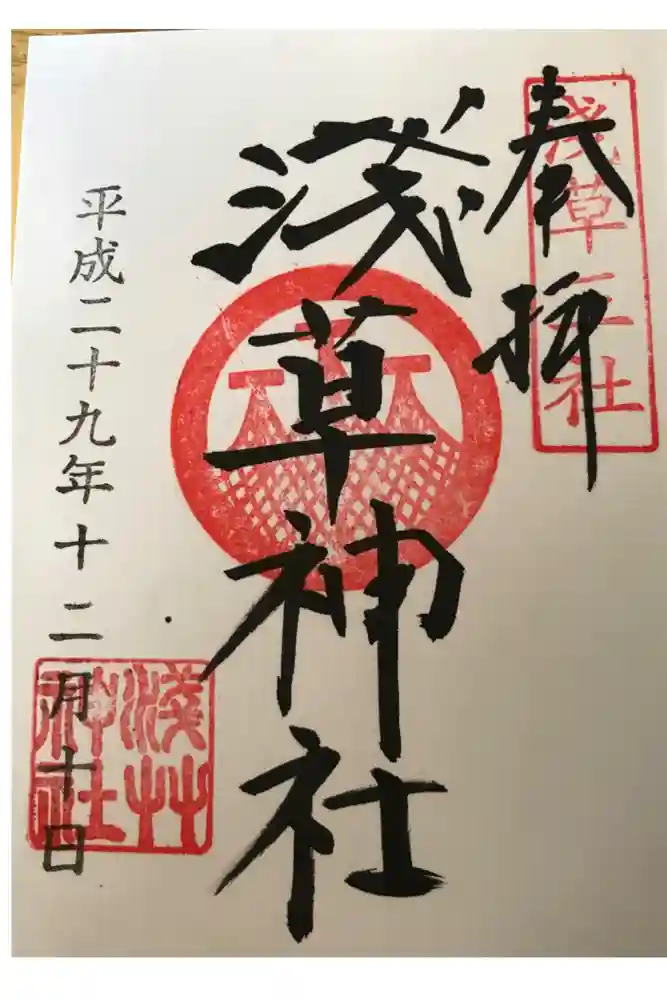 奉拝
浅草三社
淺草神社
平成二十九年十二月十日
淺艸
神社